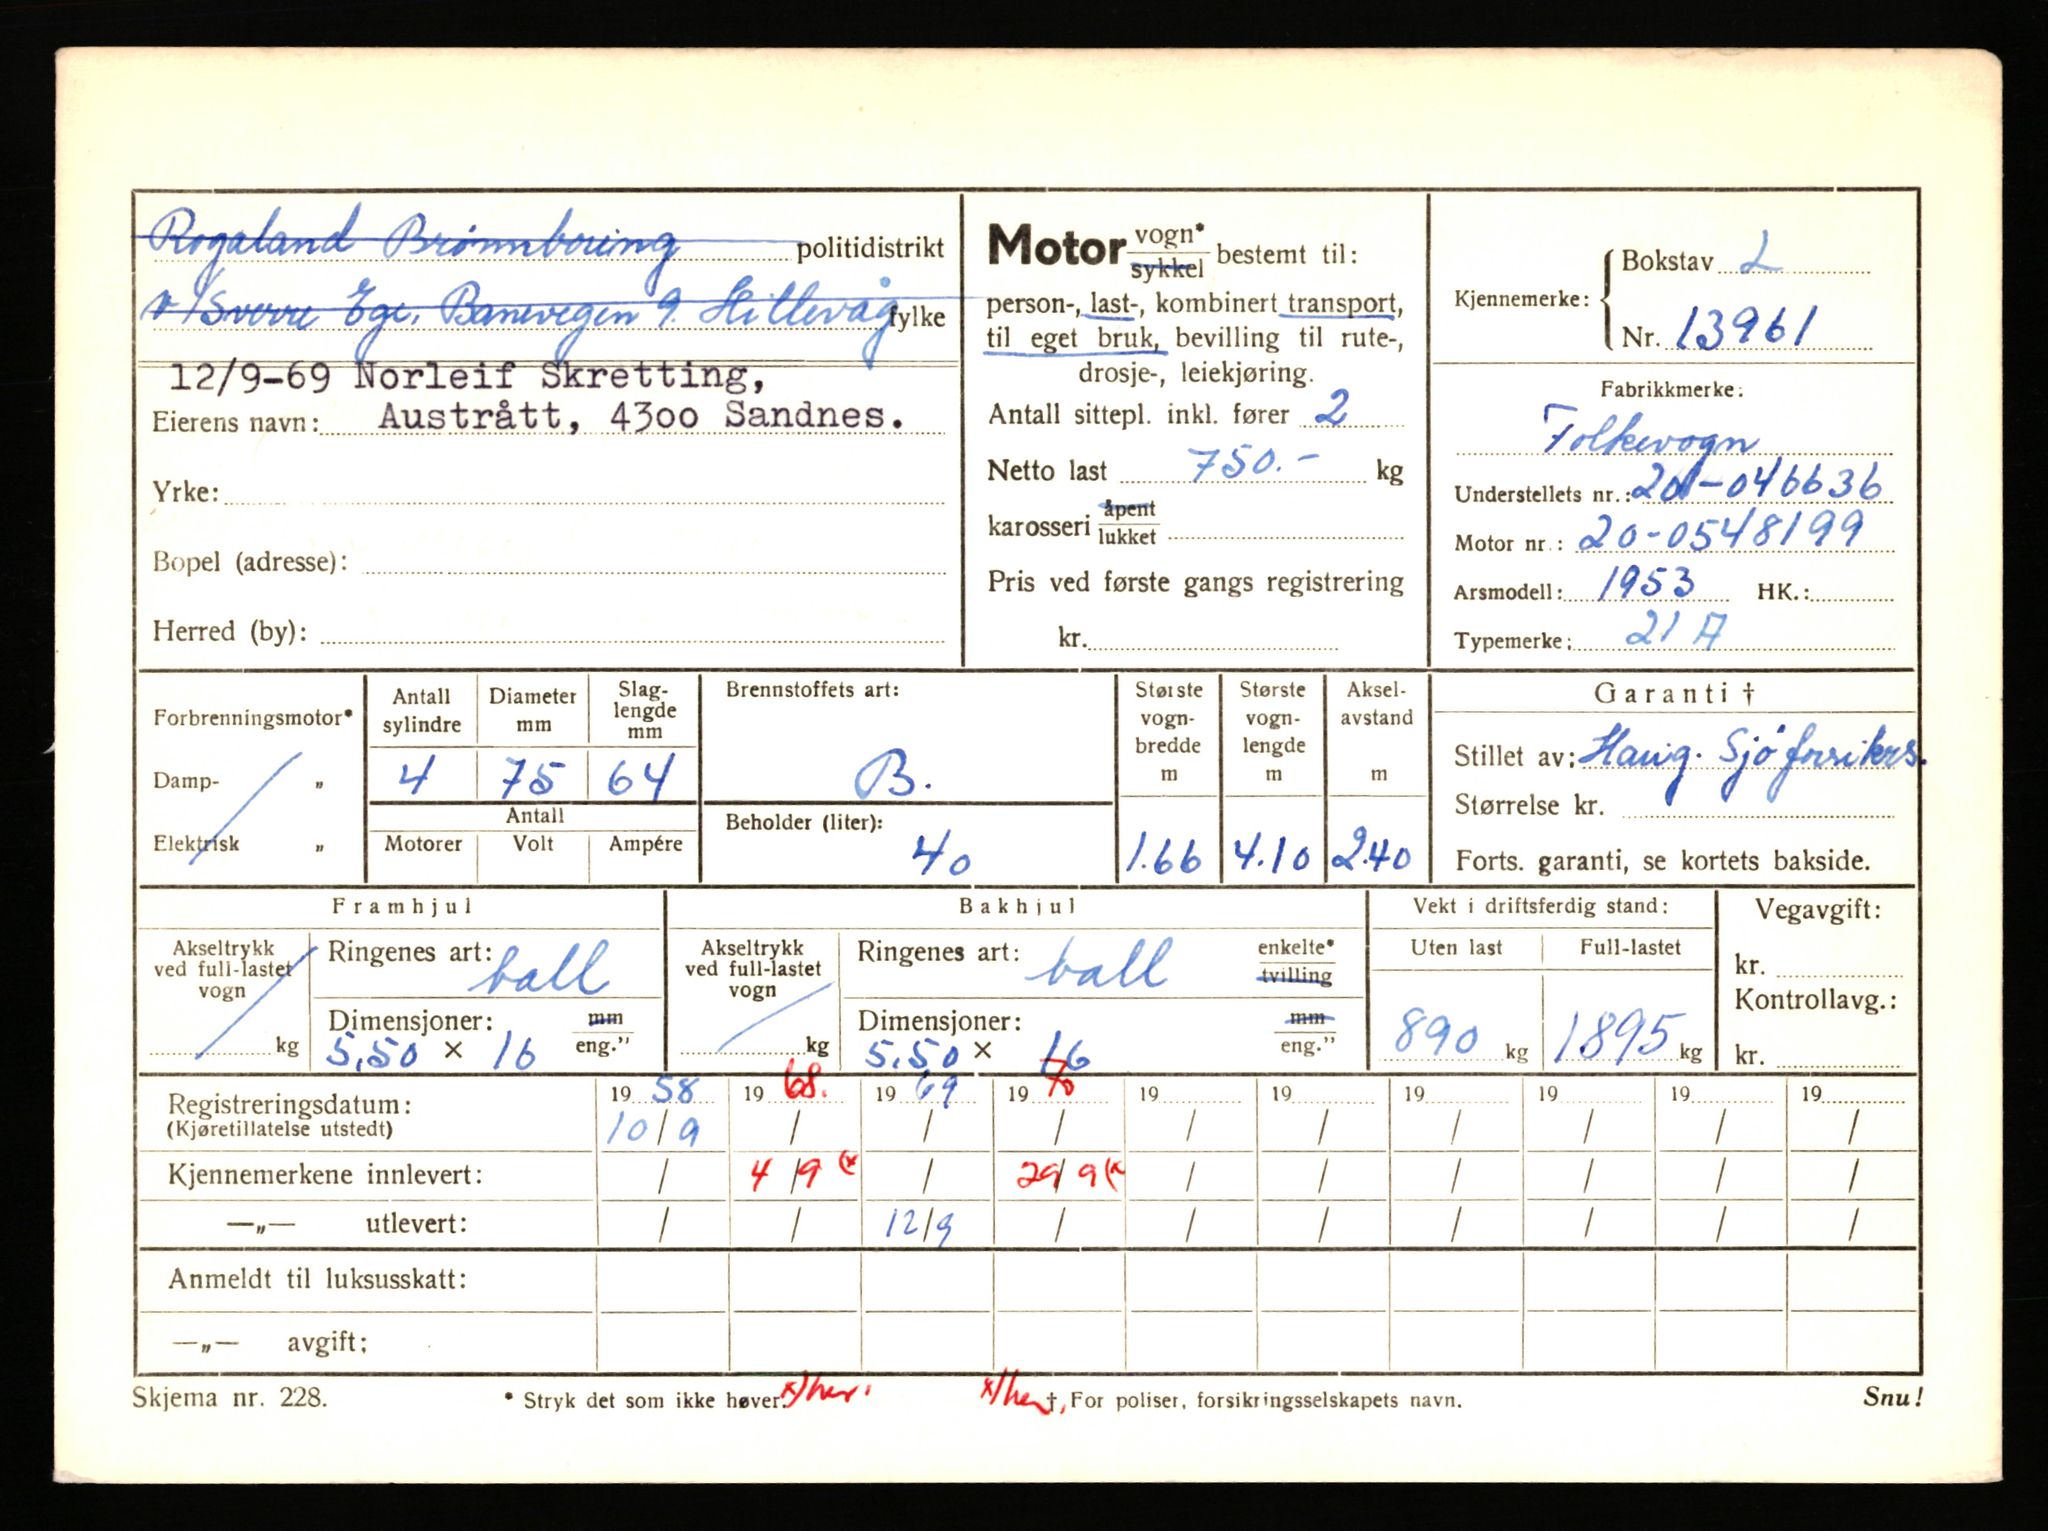 Rogaland Brønnboring politidistrikt
v/Sverre Ege, Banevegen 9. Hillevåg fylke
12/9-69 Norleif Skretting,
Eierens navn: Austrått, 4300 Sandnes.
Yrke:
Bopel (adresse):
Herred (by):
Motor vogn* sykkel bestemt til:
person-, last-, kombinert transport,
til eget bruk, bevilling til rute-,
drosje-, leiekjøring.
Antall sittepl. inkl. fører 2
Netto last 750.- kg
karosseri åpent lukket
Pris ved første gangs registrering
kr.
Kjennemerke: Bokstav L
Nr. 13961
Fabrikkmerke:
Folkevogn
Understellets nr.: 20-046636
Motor nr.: 20-0548199
Arsmodell: 1953 HK.:
Typemerke: 21 A
Forbrenningsmotor*
Damp- "
Elektrisk "
Antall sylindre
4
Diameter mm
75
Slag-lengde mm
64
Antall
Motorer Volt Ampére
Brennstoffets art:
B.
Beholder (liter):
40
Største vogn-bredde m
1.66
Største vogn-lengde m
4.10
Aksel-avstand m
2.40
Garanti †
Stillet av: Haug. Sjøforsikrs.
Størrelse kr.
Forts. garanti, se kortets bakside.
Framhjul
Akseltrykk ved full-lastet vogn
kg
Ringenes art: ball
Dimensjoner: mm eng."
5.50 × 16
Bakhjul
Akseltrykk ved full-lastet vogn
kg
Ringenes art: ball enkelte* tvilling
Dimensjoner: mm eng."
5.50 × 16
Vekt i driftsferdig stand:
Uten last Full-lastet
890 kg 1895 kg
Vegavgift:
kr.
Kontrollavg.:
kr.
Registreringsdatum: 19 58 19 68. 19 69 19 70 19 19 19 19 19 19
(Kjøretillatelse utstedt) 10/9 / / / / / / / / /
Kjennemerkene innlevert: / 4/9 (x / 29/9 (x / / / / / /
—„— utlevert: / / 12/9 / / / / / / /
Anmeldt til luksusskatt:
—„— avgift:
Skjema nr. 228. * Stryk det som ikke høver. x/her. x/her. †, For poliser, forsikringsselskapets navn. Snu!